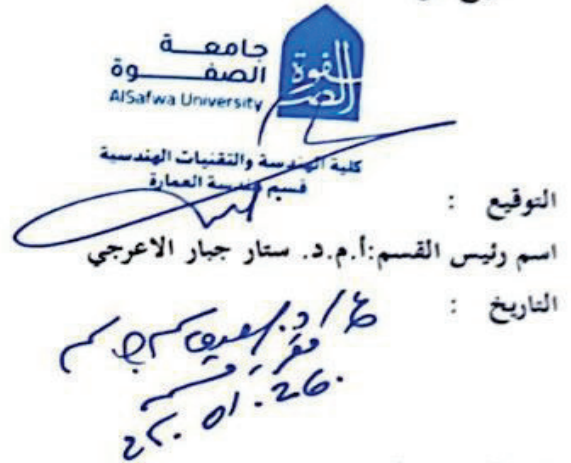 جامعة
الصفوة
AlSafwa University
كلية الهندسة والتقنيات الهندسية
قسم هندسة العمارة
التوقيع :
اسم رئيس القسم:أ.م.د. ستار جبار الاعرجي
التاريخ :
ع/ د.
26.01.26.